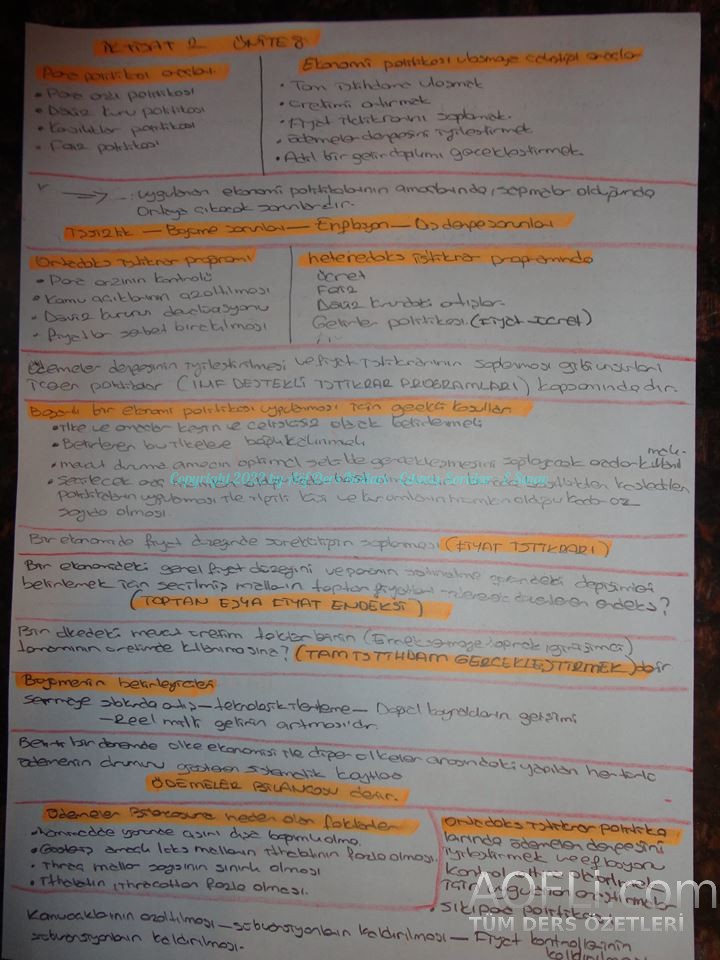 İKTİSAT 2 ÜNİTE 8
Para politikası araçları
• Para arzı politikası
• Döviz kuru politikası
• politikası
• Faiz politikası
Ekonomi politikası ulaşmaya çalıştığı araçlar
• Tam istihdama ulaşmak
• Üretimi artırmak
• Fiyat istikrarını sağlamak.
• ödemeler dengesini iyileştirmek
• Adil bir gelir dağılımı gerçekleştirmek.
uygulanan ekonomi politikalarının amaçlarında, sapmalar olduğunda
Ortaya çıkacak sorunlardır.
İşsizlik — Büyüme sorunları — Enflasyon — Dış denge sorunları
Ortodoks istikrar programı
• Para arzının kontrolü
• Kamu açıklarının azaltılması
• Döviz kurunu devalüasyonu
• Fiyatlar sabet bırakılması
heteredoks istikrar programında
ücret
Faiz
Döviz kurdaki artışlar.
Gelirler politikası. (Fiyat-ücret)
Ödemeler dengesinin iyileştirilmesi ve fiyat istikrarının sağlanması gibi unsurları
İçeren politikalar (IMF DESTEKLİ İSTİKRAR PROGRAMLARI) kapsamındadır.
Başarılı bir ekonomi politikası uygulanması için gerekli koşullar
• ilke ve amaçlar kesin ve çelişkisiz olarak belirlenmeli
• Belirlenen bu ilkelere bağlı kalınmalı
• mevcut duruma amacın optimal şekilde gerçekleşmesini sağlayacak kullanıl
malı.
• Seçilecek
politikaların uygulaması ile ilgili kişi ve kurumların mümkün olduğu kadar az
sayıda olması.
Bir ekonomide fiyat düzeyinde sürekliliğin sağlanması (FİYAT İSTİKRARI)
Bir ekonomideki genel fiyat düzeyini ve paranın satınalma gücündeki değişimleri
belirlemek için seçilmiş malların toptan fiyatları düzenlenen endeks?
(TOPTAN EŞYA FİYAT ENDEKSİ)
Bir ülkedeki mevcut üretim faktörlerinin (Emek-sermaye-toprak-girişimci)
tamamının üretimde kullanılmasına? (TAM İSTİHDAM GERÇEKLEŞTİRMEK) dir
Büyümenin belirleyicileri
Sermaye stokunda artış — teknolojik ilerleme — Doğal kaynakların gelişimi
— Reel milli gelirin artması'dır.
Belirli bir dönemde ülke ekonomisi ile diğer ülkeler arasındaki yapılan her türlü
ödemenin durumu gösteren sistematik kayıtlara
ÖDEMELER BİLANÇOSU denir.
Ödemeler Bilançosuna neden olan faktörler
• hammadde yönünde aşırı dışa bağımlı olma.
• Gösteriş amaçlı lüks malların ithalatının fazla olması.
• İhraç mallar sayısının sınırlı olması
• İthalatın ihracattan fazla olması.
Ortodoks istikrar politika
larında ödemeler dengesini
iyileştirmek ve enflasyonu
kontrol altına aldırmak
için uygulanan
• Sıkı para politikası
Kamu açıklarının azaltılması — sübvansiyonların kaldırılması — Fiyat kontrollerinin
kaldırılması
sübvansiyonların kaldırılması.
AOFLi.com
TÜM DERS ÖZETLERİ